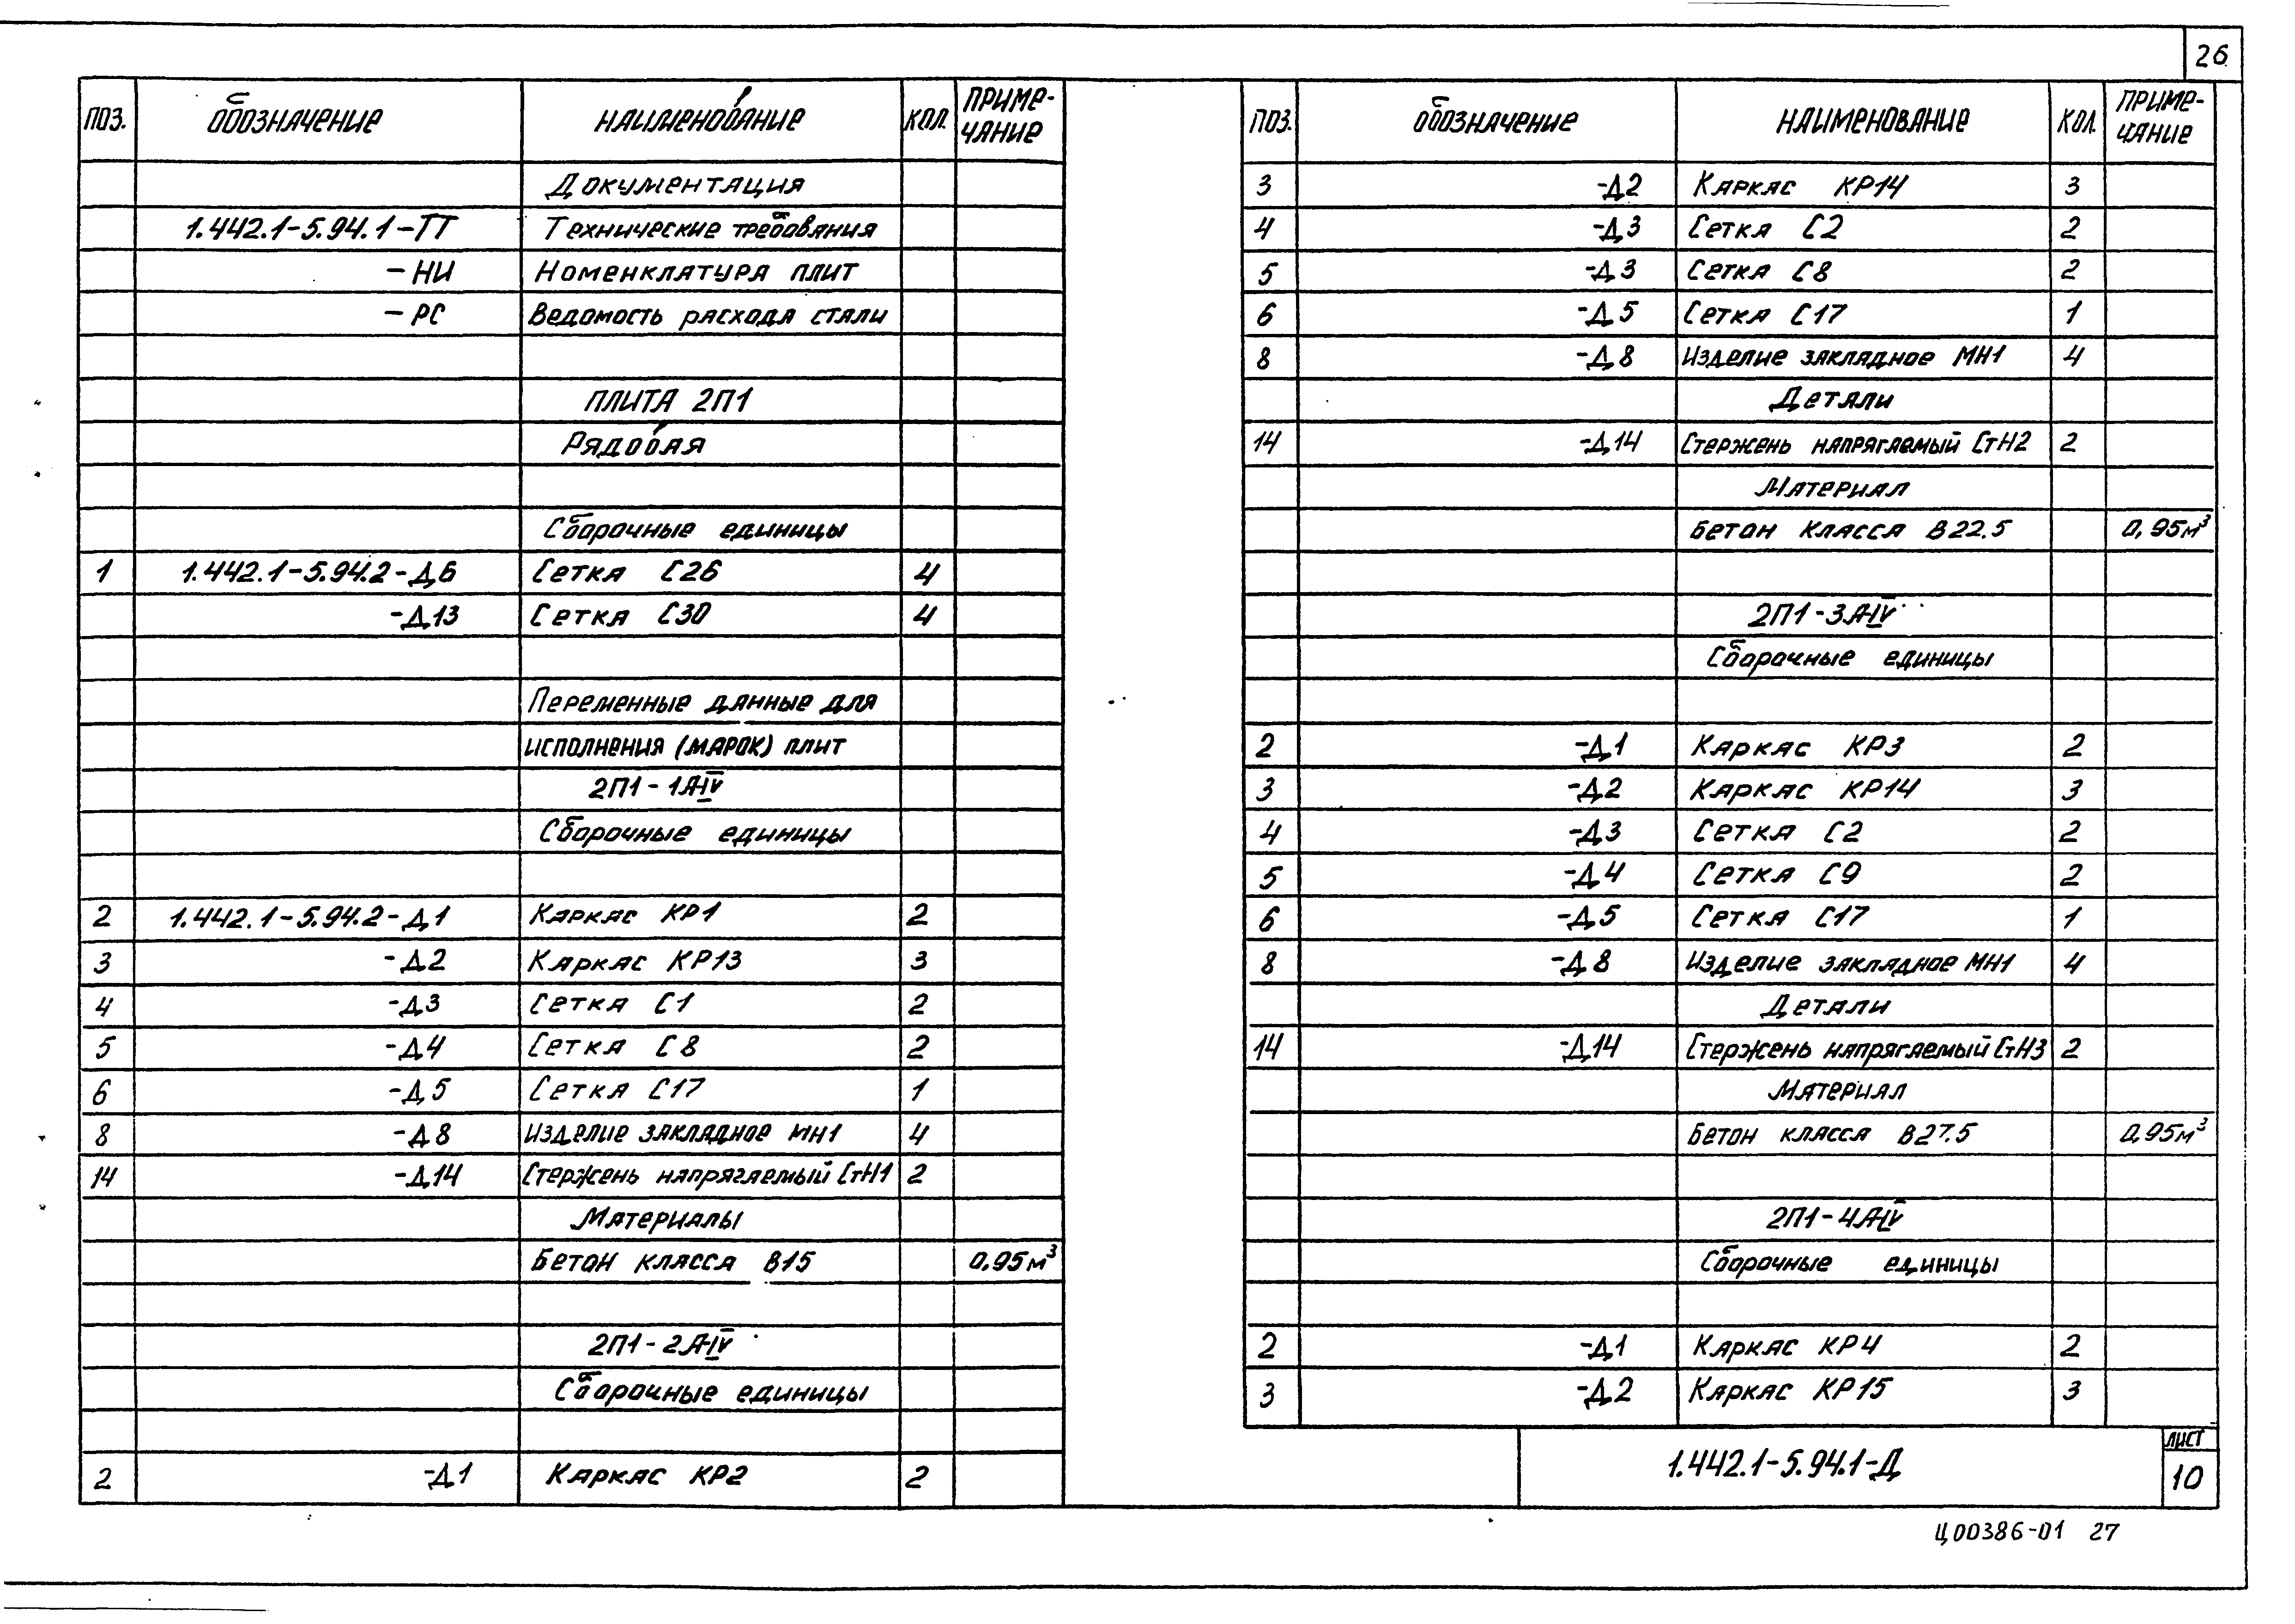 26
ПОЗ. ОБОЗНАЧЕНИЕ НАИМЕНОВАНИЕ КОЛ. ПРИМЕ-
ЧАНИЕ
Документация
1.442.1-5.94.1-ТТ Технические требования
-НИ Номенклатура плит
-РС Ведомость расхода стали
ПЛИТА 2П1
Рядовая
Сборочные единицы
1 1.442.1-5.94.2-Д6 Сетка С26 4
-Д13 Сетка С30 4
Переменные данные для
исполнения (марок) плит
2П1-1А-IV
Сборочные единицы
2 1.442.1-5.94.2-Д1 Каркас КР1 2
3 -Д2 Каркас КР13 3
4 -Д3 Сетка С1 2
5 -Д4 Сетка С8 2
6 -Д5 Сетка С17 1
8 -Д8 Изделие закладное МН1 4
14 -Д14 Стержень напрягаемый СтН1 2
Материалы
Бетон класса В15 0,95м³
2П1-2А-IV
Сборочные единицы
2 -Д1 Каркас КР2 2
ПОЗ. ОБОЗНАЧЕНИЕ НАИМЕНОВАНИЕ КОЛ. ПРИМЕ-
ЧАНИЕ
3 -Д2 Каркас КР14 3
4 -Д3 Сетка С2 2
5 -Д3 Сетка С8 2
6 -Д5 Сетка С17 1
8 -Д8 Изделие закладное МН1 4
Детали
14 -Д14 Стержень напрягаемый СтН2 2
Материал
Бетон класса В22.5 0,95м³
2П1-3А-IV
Сборочные единицы
2 -Д1 Каркас КР3 2
3 -Д2 Каркас КР14 3
4 -Д3 Сетка С2 2
5 -Д4 Сетка С9 2
6 -Д5 Сетка С17 1
8 -Д8 Изделие закладное МН1 4
Детали
14 -Д14 Стержень напрягаемый СтН3 2
Материал
Бетон класса В27.5 0,95м³
2П1-4А-IV
Сборочные единицы
2 -Д1 Каркас КР4 2
3 -Д2 Каркас КР15 3
1.442.1-5.94.1-Д
ЛИСТ
10
Ц00386-01 27